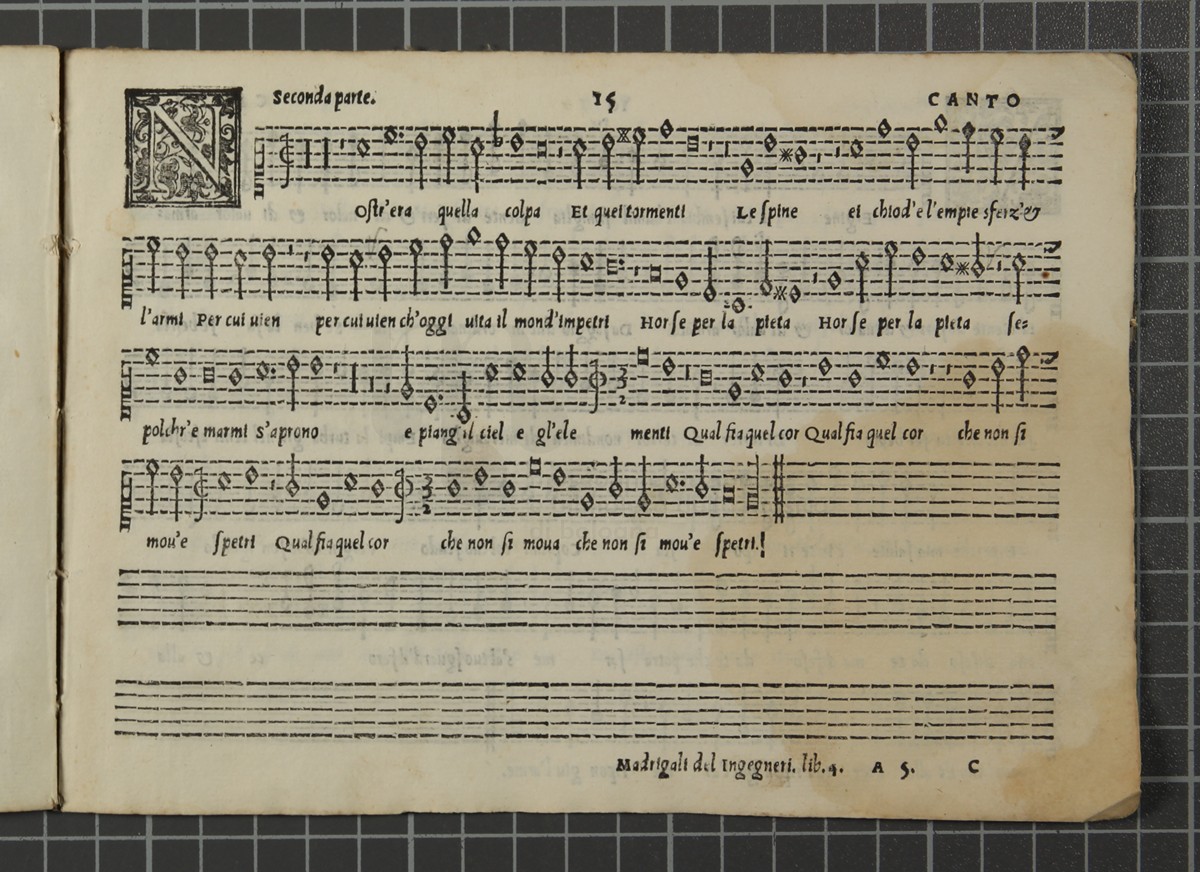 Seconda parte. 15 CANTO
NOstr'era quella colpa Et quei tormenti Le spine ei chiod'e l'empie sferz'&
l'armi Per cui uien per cui uien ch'oggi uita il mond'impetri Hor se per la pieta Hor se per la pieta se=
polchr'e marmi s'aprono e piang'il ciel e gl'ele menti Qual fia quel cor Qual fia quel cor che non si
mou'e spetri Qual fia quel cor che non si moua che non si mou'e spetri.!
Madrigali del Ingegneri. lib.4. A 5. C